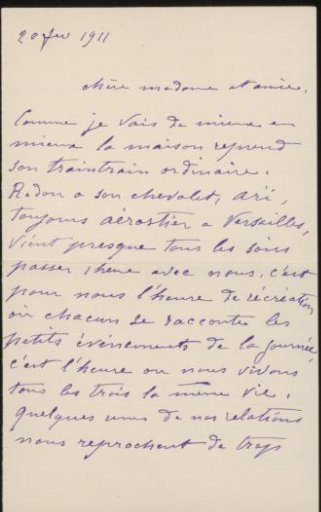 20 fev 1911
chère madame et amie,
Comme je vais de mieux en
mieux la maison reprend
son traintrain ordinaire.
Redon a son chevalet, Ari,
toujours aérostier a Versailles,
vient presque tous les soirs
passer 1 heure avec nous. c'est
pour nous l'heure de récréation
où chacun se raconte les
petits événements de la journée,
c'est l'heure ou nous vivons
tous les trois la même vie.
quelques uns de nos relations
nous reprochent de trop